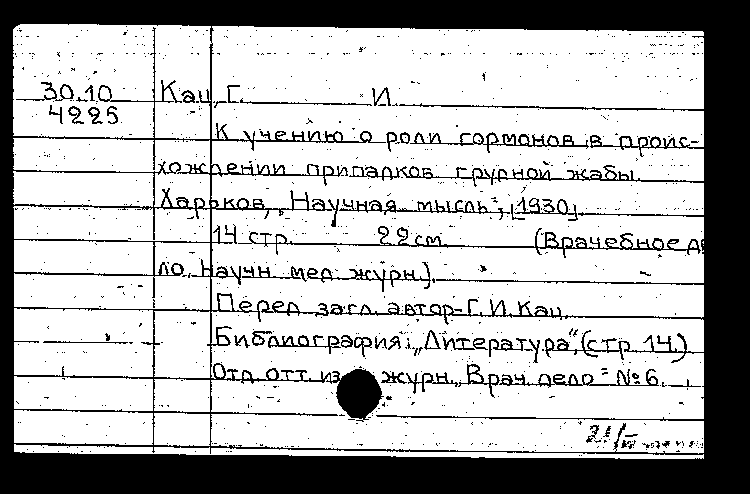 30.10 Кац, Г. И
4225
К учению о роли гормонов в проис-
хождении припадков грудной жабы.
Харьков, "Научная мысль", [1930].
14 стр. 22 см. (Врачебное де
ло. Научн. мед. журн.).
Перед загл. автор-Г. И. Кац.
Библиография: "Литература", (стр 14.)
Отд. отт. из журн. "Врач. дело" № 6.
21/